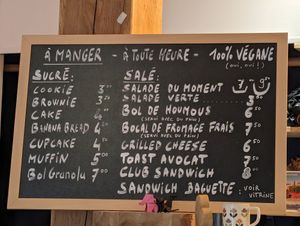 À MANGER - À TOUTE HEURE - 100% VÉGANE
(oui, oui!)
SUCRÉ:
COOKIE 3
BROWNIE 3,50
CAKE 4
BANANA BREAD 4,50
CUPCAKE 4,50
MUFFIN 5,00
Bol Granola 7,00
SALÉ:
SALADE DU MOMENT
SALADE VERTE 3
BOL DE HOUMOUS 6,50
(SERVI AVEC DU PAIN)
BOCAL DE FROMAGE FRAIS 7,50
(SERVI AVEC DU PAIN)
GRILLED CHEESE 6,50
TOAST AVOCAT 7,50
CLUB SANDWICH 8,00
SANDWICH BAGUETTE: VOIR
VITRINE